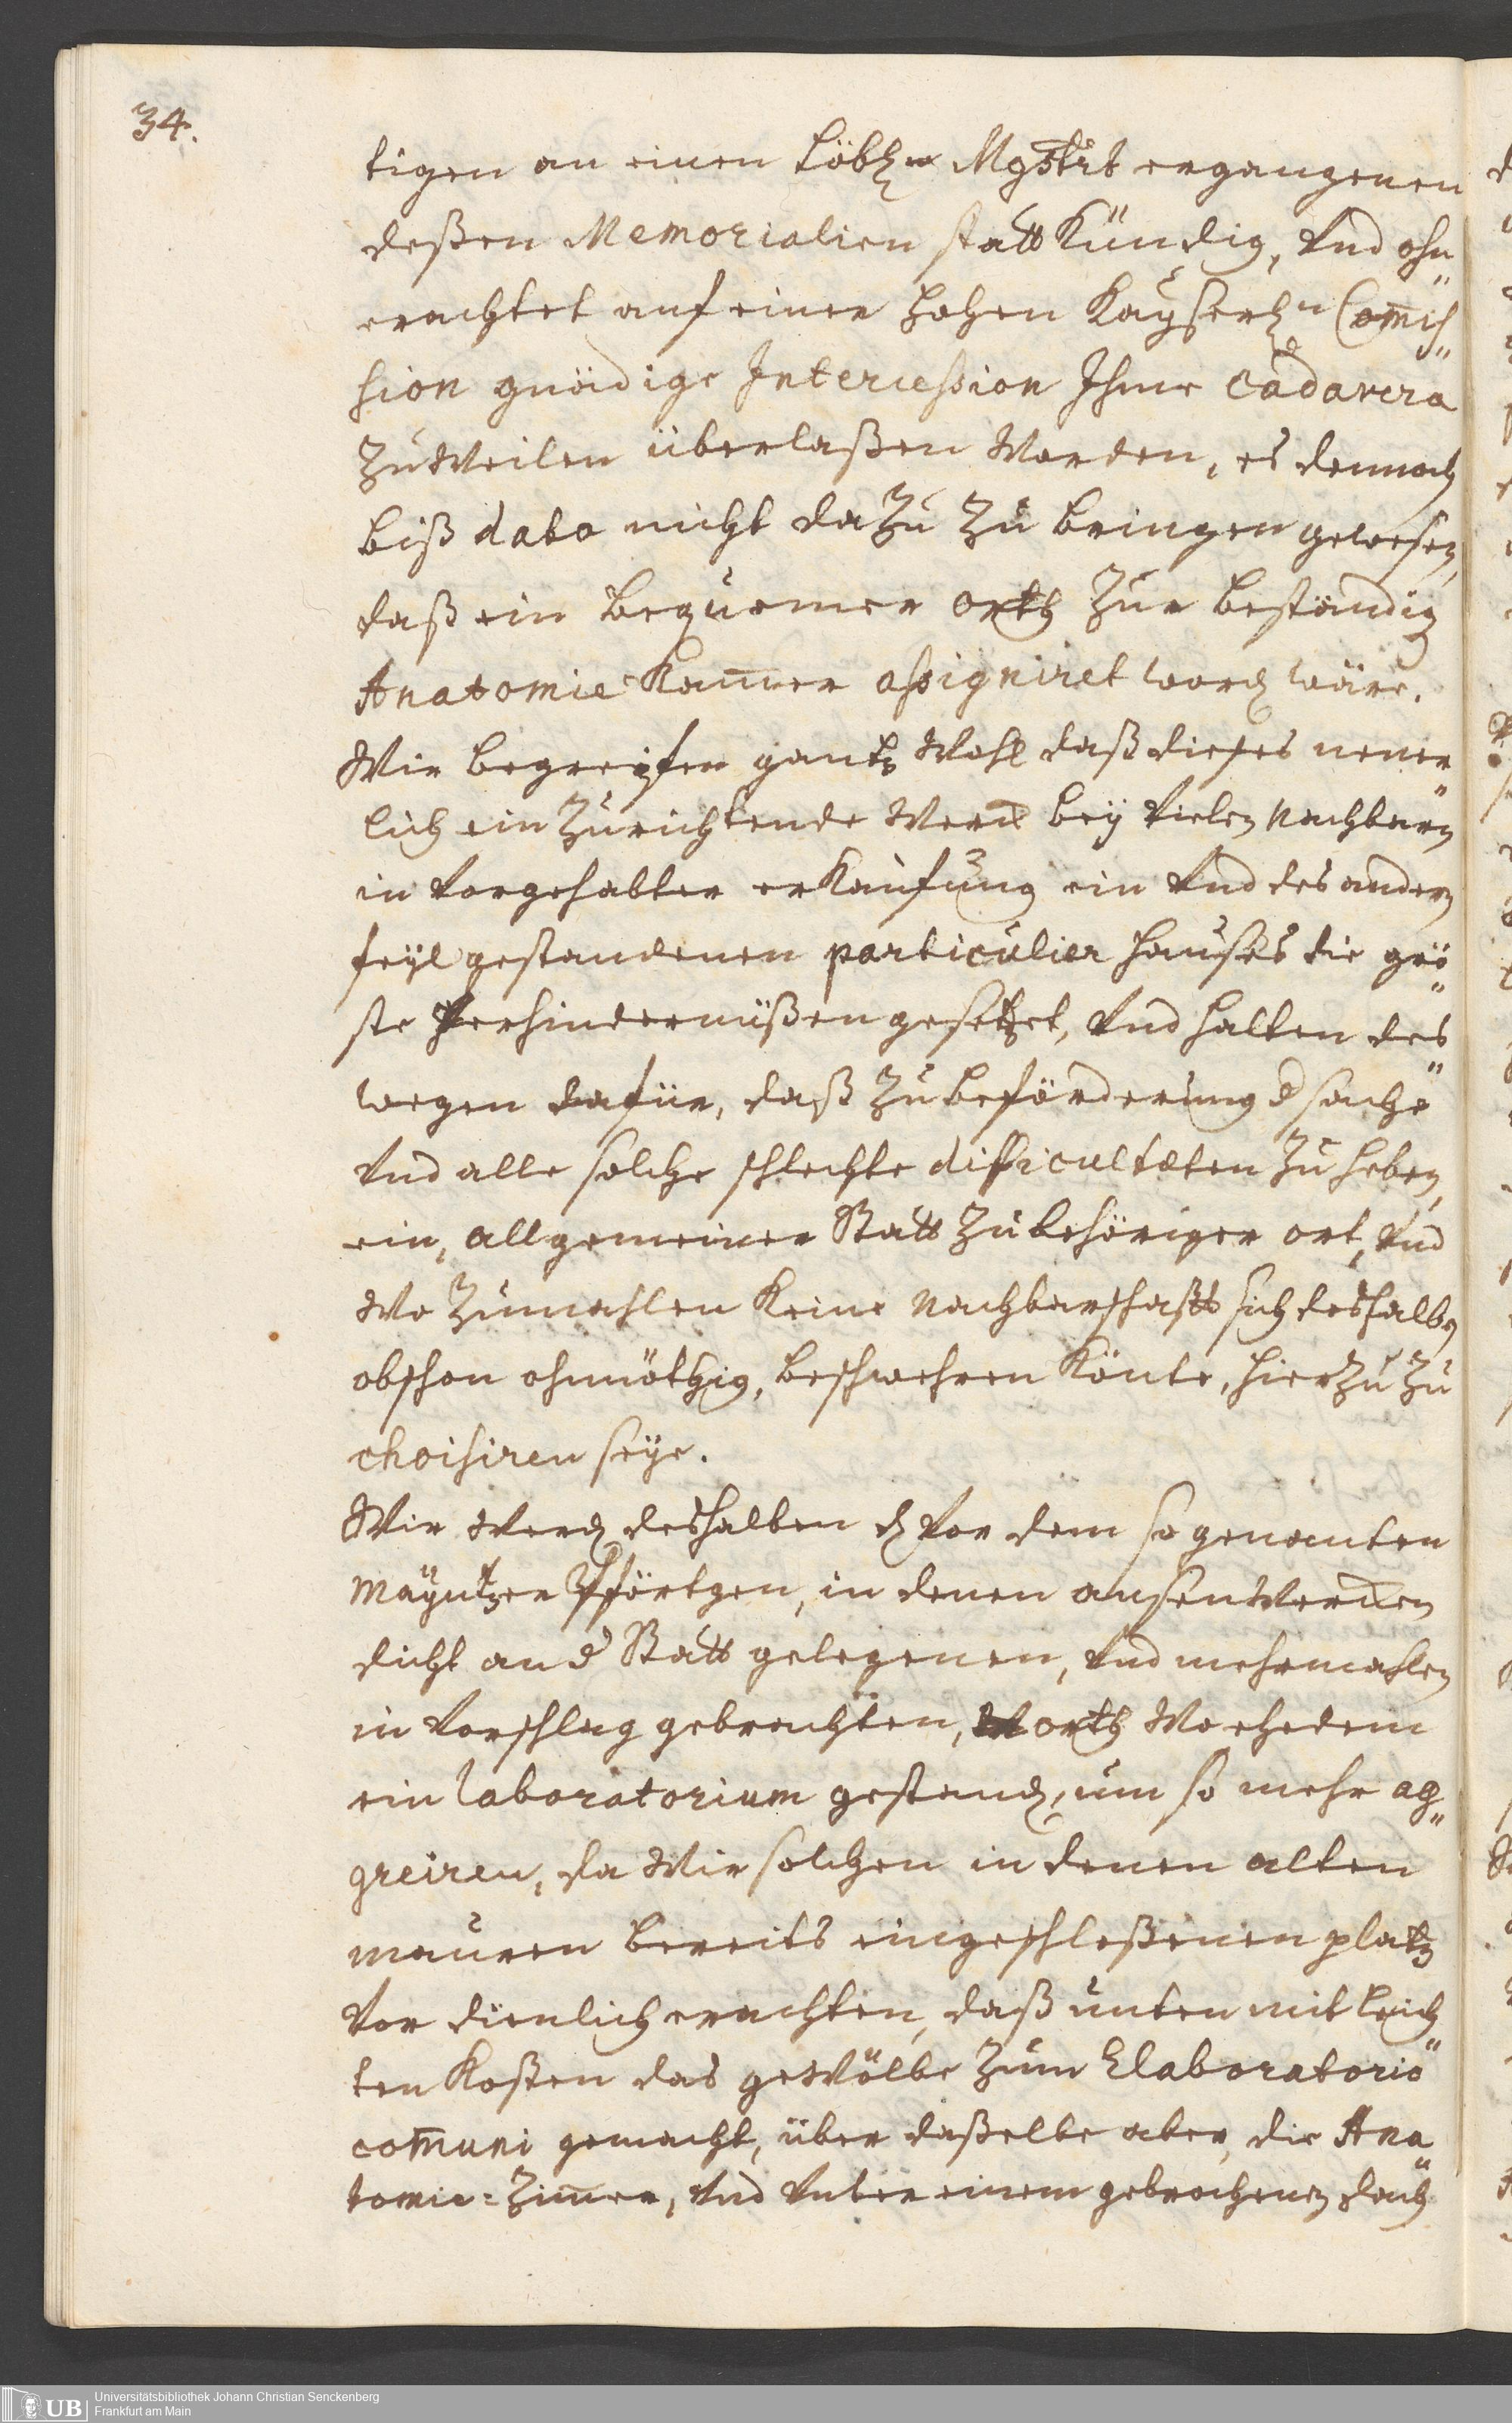 34.
tigen an einen Löbl. Mgstrt ergangenen
deßen Memorialien stattkündig, Und ohn„
erachtet auf einer hohen Kayserln Com̅is„
sion gnädige Intercession Ihme Cadavera
zuweilen überlaßen Worden, es dennoch
biß dato nicht dazu zu bringen gewesen,
daß ein bequemer orth zur beständig
Anatomie-Kam̅er assigniret word wäre.
Wir begreifen gantz Wohl daß dieses neuer„
lich einzurichtende Werck bey Vielen Nachbarn
in Vorgehabter erkaufung ein Und des andern
feyl gestandenen particulier hauses die grö„
ste Verhindernüßen gesetzet, Und halten des„
wegen dafür, daß zu beförderung d sache
Und alle solche schlechte difficultæten zu heben,
ein, allgemeiner Statt zubehöriger ort, Und
Wo zumahlen keine Nachbarschafft sich deshalben
obschon ohnnöthig, beschwehren könte, hierzu zu
choisiren seye.
Wir Werd deshalben d Vor dem so genanten
Mayntzer Pförtgen, in denen ausenwercken
dicht an d Statt gelegenen, Und mehrmahlen
in Vorschlag gebrachten, orth Wo ehedem
ein laboratorium gestand, um so mehr ag„
greiren, da Wir solchen in denen alten
mauren bereits eingeschloßenen platz
Vor dienlich erachten, daß unten mit leich„
ten Kosten das gewölbe zum Elaboratorio
com̅uni gemacht, über daßelbe aber, die Ana„
tomie=Zim̅er, Und Unter einem gebrochenen dach
Universitätsbibliothek Johann Christian Senckenberg
Frankfurt am Main
UB